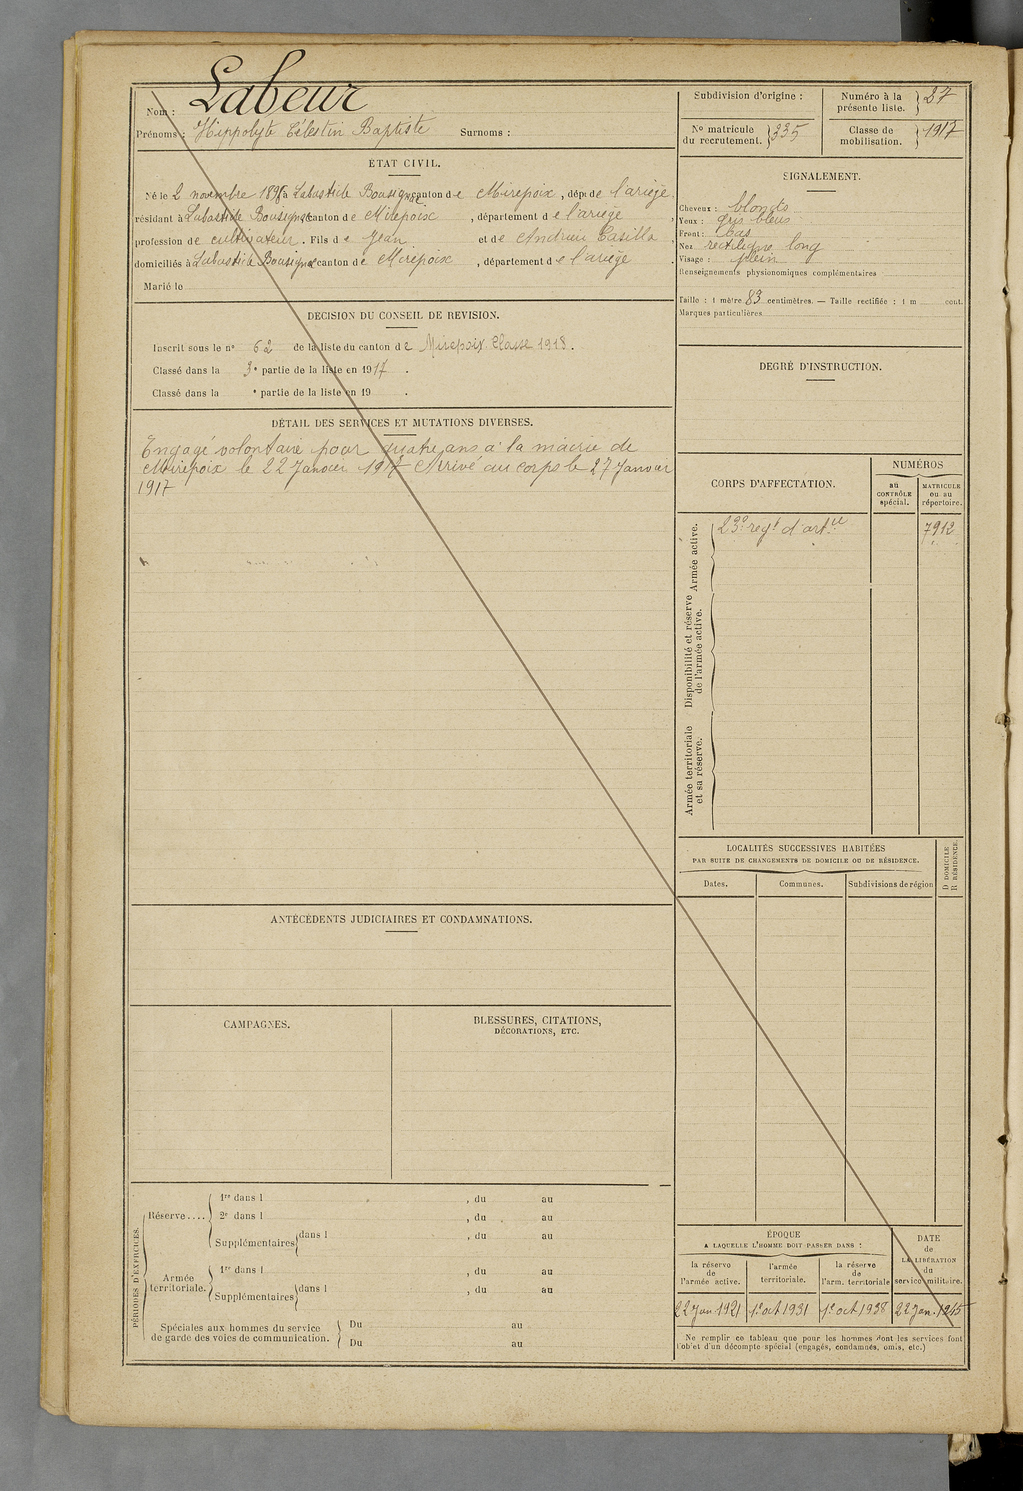 Nom : Labeur
Prénoms : Hippolyte Célestin Baptiste Surnoms :
ETAT CIVIL.
Né le 2 novembre 1898 à Labastide Bousignac canton de Mirepoix, dépt de l'ariège
résidant à Labastide Bousignac canton de Mirepoix, département de l'ariège,
profession de cultivateur. Fils de Jean et de Andrieu Casilla
domiciliés à Labastide Bousignac canton de Mirepoix, département de l'ariège.
Marié le
DECISION DU CONSEIL DE REVISION.
Inscrit sous le no 62 de la liste du canton de Mirepoix. Classe 1918.
Classé dans la 3e partie de la liste en 1917.
Classé dans la e partie de la liste en 19 .
DÉTAIL DES SERVICES ET MUTATIONS DIVERSES.
Engagé volontaire pour quatre ans à la mairie de
Mirepoix le 22 Janvier 1917 Arrivé au corps le 27 Janvier
1917
ANTÉCÉDENTS JUDICIAIRES ET CONDAMNATIONS.
CAMPAGNES.
BLESSURES, CITATIONS,
DÉCORATIONS, ETC.
PÉRIODES D'EXERCICES.
Réserve....
1re dans l , du au
2e dans l , du au
Supplémentaires dans l , du au
Armée
territoriale.
1re dans l , du au
Supplémentaires dans l , du au
Spéciales aux hommes du service
de garde des voies de communication.
Du au
Du au
Subdivision d'origine :
Numéro à la
présente liste. 27
No matricule
du recrutement. 335
Classe de
mobilisation. 1917
SIGNALEMENT.
Cheveux : blonds
Yeux : Gris bleus
Front : bas
Nez rectiligne long
Visage : plein
Renseignements physionomiques complémentaires
Taille : 1 mètre 83 centimètres. — Taille rectifiée : 1 m cent.
Marques particulières
DEGRÉ D'INSTRUCTION.
CORPS D'AFFECTATION.
NUMÉROS
au
CONTRÔLE
spécial.
MATRICULE
ou au
répertoire.
Armée active.
23e regt d'artie 7912
Disponibilité et réserve
de l'armée active.
Armée territoriale
et sa réserve.
LOCALITÉS SUCCESSIVES HABITÉES
PAR SUITE DE CHANGEMENTS DE DOMICILE OU DE RÉSIDENCE.
D DOMICILE
R RÉSIDENCE.
Dates. Communes. Subdivisions de région
ÉPOQUE
A LAQUELLE L'HOMME DOIT PASSER DANS :
DATE
de
LA LIBÉRATION
du
service militaire.
la réserve
de
l'armée active.
l'armée
territoriale.
la réserve
de
l'arm. territoriale
22 Jan 1921 1e oct 1931 1e oct 1938 22 Jan. 1945
Ne remplir ce tableau que pour les hommes dont les services font
l'objet d'un décompte spécial (engagés, condamnés, omis, etc.)